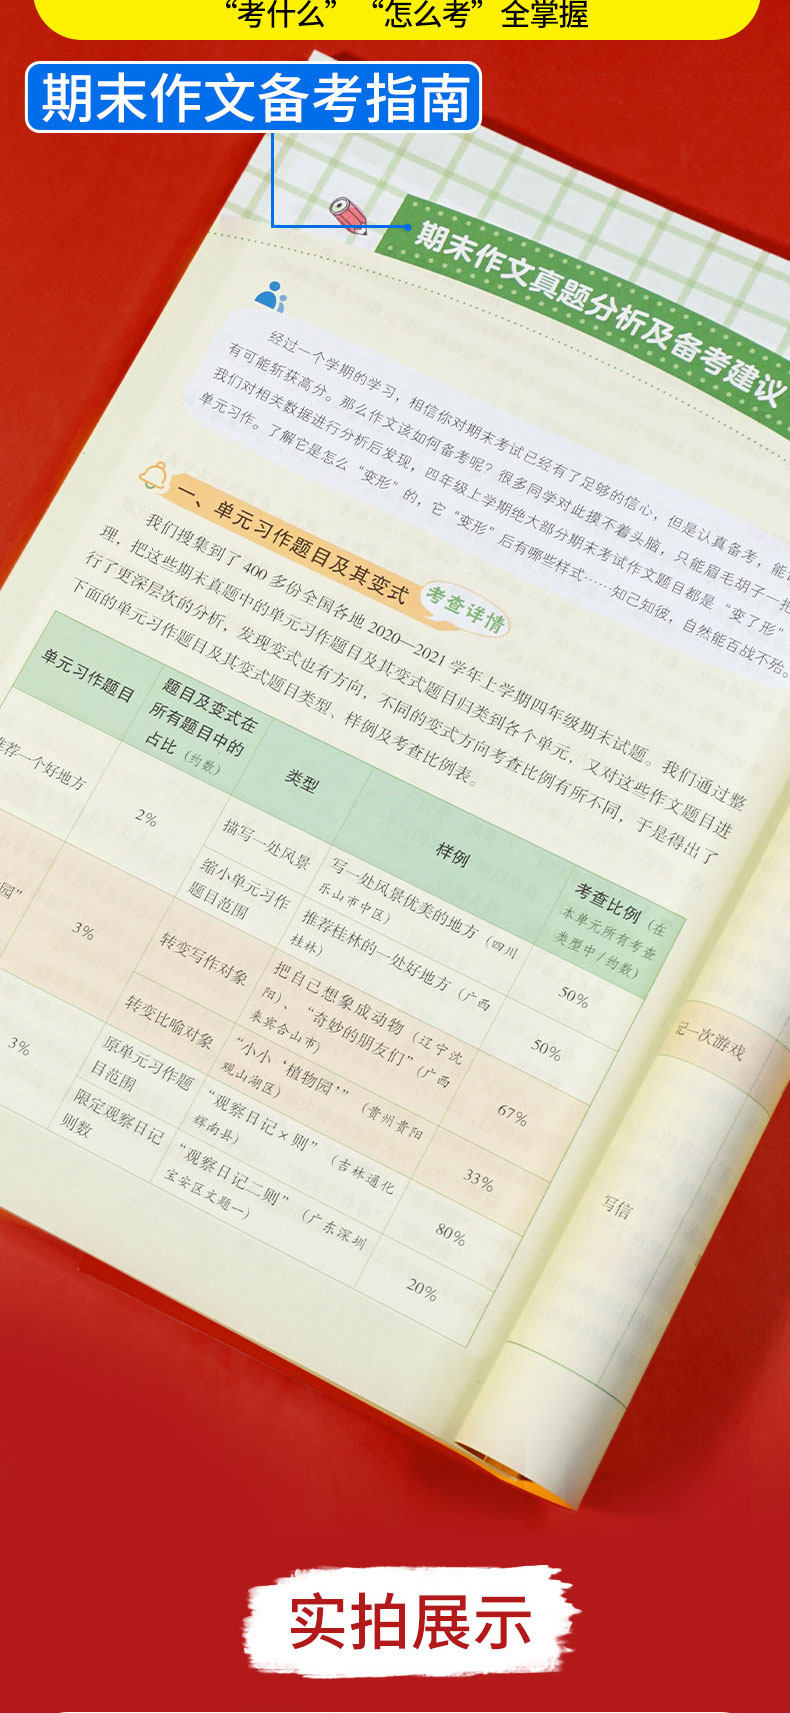 “考什么”“怎么考”全掌握
期末作文备考指南
期末作文真题分析及备考建议
经过一个学期的学习，相信你对期末考试已经有了足够的信心，但是认真备考，能
有可能斩获高分。那么作文该如何备考呢？很多同学对此摸不着头脑，只能眉毛胡子一把
我们对相关数据进行分析后发现，四年级上学期绝大部分期末考试作文题目都是“变了形”
单元习作。了解它是怎么“变形”的，它“变形”后有哪些样式……知己知彼，自然能百战不殆。
一、单元习作题目及其变式 考查详情
我们搜集到了400多份全国各地2020—2021学年上学期四年级期末试题。我们通过整
理，把这些期末真题中的单元习作题目及其变式题目归类到各个单元，又对这些作文题目进
行了更深层次的分析，发现变式也有方向，不同的变式方向考查比例有所不同，于是得出了
下面的单元习作题目及其变式题目类型、样例及考查比例表。
单元习作题目
题目及变式在
所有题目中的
占比（约数）
类型
样例
考查比例（在
本单元所有考查
类型中/约数）
推荐一个好地方
2%
描写一处风景
写一处风景优美的地方（四川
乐山市中区）
50%
缩小单元习作
题目范围
推荐桂林的一处好地方（广西
桂林）
50%
园”
3%
转变写作对象
把自己想象成动物（辽宁沈
阳）、“奇妙的朋友们”（广西
来宾合山市）
67%
转变比喻对象
“小小‘植物园’”（贵州贵阳
观山湖区）
33%
3%
原单元习作题
目范围
“观察日记×则”（吉林通化
辉南县）
80%
限定观察日记
则数
“观察日记二则”（广东深圳
宝安区文题一）
20%
记一次游戏
写信
实拍展示